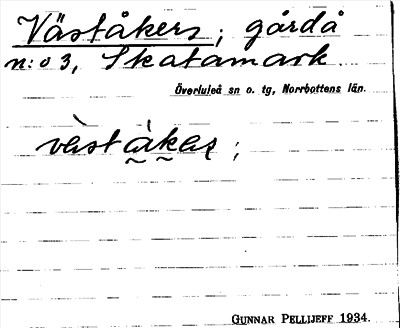 Väståkers; gård å
n:o 3, Skatamark
Överluleå sn o. tg, Norrbottens län.
vàståkaʂ;
GUNNAR PELLIJEFF 1934.